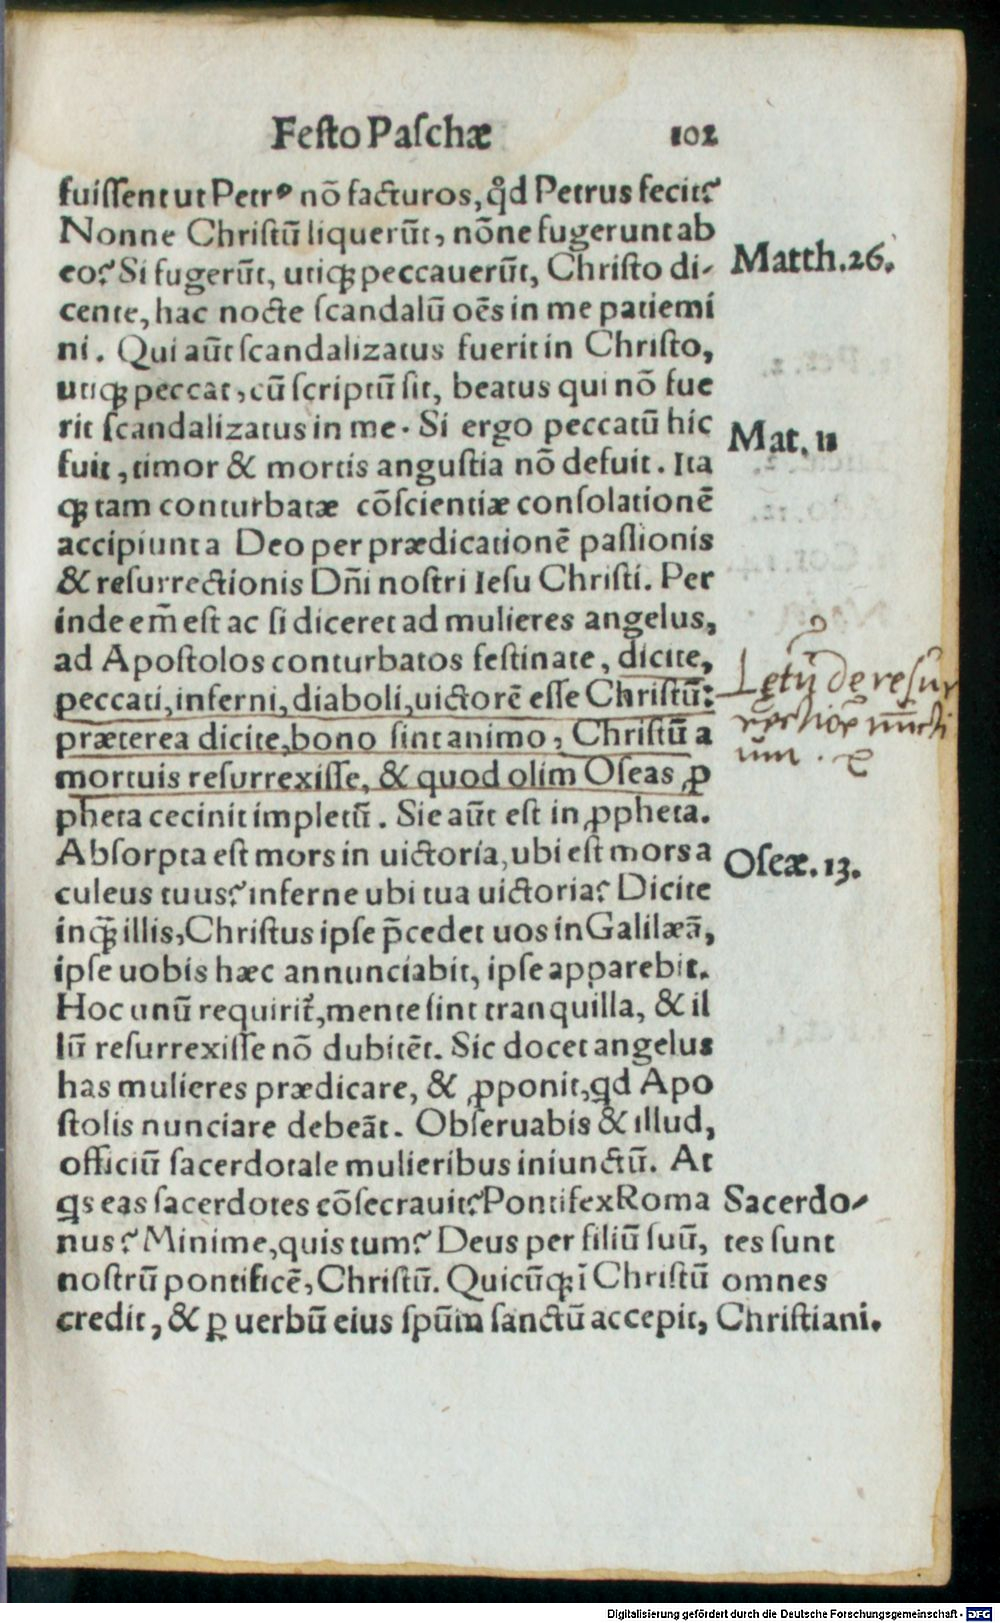 Festo Paschæ 102
fuissent ut Petrꝰ nõ facturos, qđ Petrus fecit?
Nonne Christũ liquerũt, nõne fugerunt ab
eo? Si fugerũt, utiqꝫ peccauerũt, Christo di-
Matth.26.
cente, hac nocte scandalũ oẽs in me patiemi
ni. Qui aũt scandalizatus fuerit in Christo,
utiqꝫ peccat, cũ scriptũ sit, beatus qui nõ fue
rit scandalizatus in me. Si ergo peccatũ hic
Mat. 11
fuit, timor & mortis angustia nõ defuit. Ita
qꝫ tam conturbatæ cõscientiæ consolationẽ
accipiunt a Deo per prædicationẽ passionis
& resurrectionis Dñi nostri Iesu Christi. Per
inde em̃ est ac si diceret ad mulieres angelus,
ad Apostolos conturbatos festinate, dicite,
peccati, inferni, diaboli, uictorẽ esse Christũ:
præterea dicite, bono sint animo, Christũ a
mortuis resurrexisse, & quod olim Oseas ꝓ
pheta cecinit impletũ. Sic aũt est in ꝓpheta.
Absorpta est mors in uictoria, ubi est mors a
Oseæ. 13.
culeus tuus? inferne ubi tua uictoria? Dicite
inqꝫ illis, Christus ipse p̃cedet uos in Galilæã,
ipse uobis hæc annunciabit, ipse apparebit.
Hoc unũ requirit̃, mente sint tranquilla, & il
lũ resurrexisse nõ dubitẽt. Sic docet angelus
has mulieres prædicare, & ꝓponit, qd Apo
stolis nunciare debeãt. Obseruabis & illud,
officiũ sacerdotale mulieribus iniunctũ. At
qs eas sacerdotes cõsecrauit? Pontifex Roma
nus? Minime, quis tum? Deus per filiũ suũ,
nostrũ pontificẽ, Christũ. Quicũqꝫ ĩ Christũ
credit, & ꝑ uerbũ eius spũm sanctũ accepit,
Sacerdo-
tes sunt
omnes
Christiani.
Lętÿ de resur
rectiõe nũcti
um
Digitalisierung gefördert durch die Deutsche Forschungsgemeinschaft - DFG